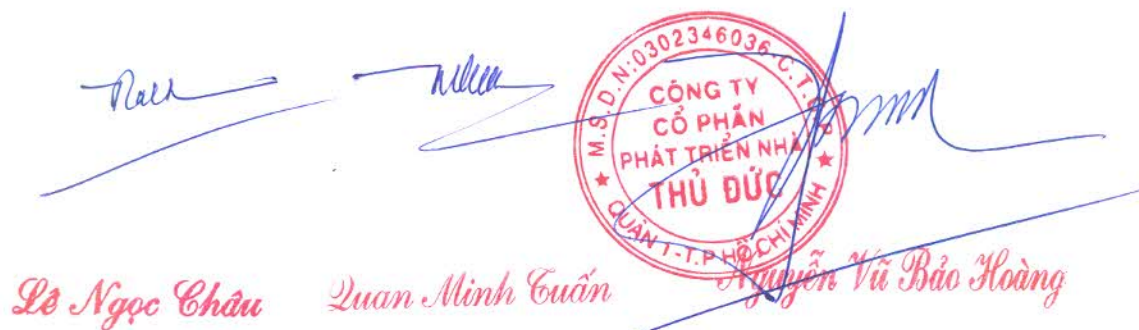 M.S.D.N:0302346036-C.T.C.P
CÔNG TY
CỔ PHẦN
PHÁT TRIỂN NHÀ
THỦ ĐỨC
QUẬN 1-T.P HỒ CHÍ MINH
Lê Ngọc Châu Quan Minh Tuấn Nguyễn Vũ Bảo Hoàng